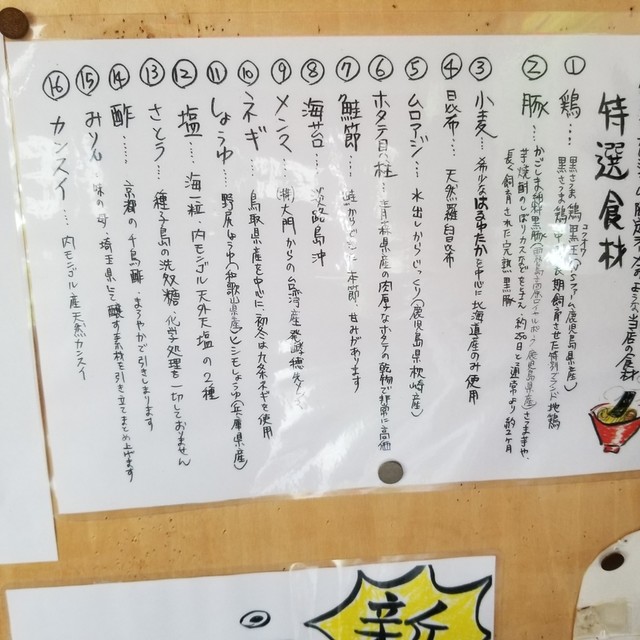 特選食材
① 鶏… 黒さつま鶏 黒王(コッオウ)
黒さつま鶏の中で長期飼育させた特別ブランド地鶏
② 豚… かごしま純粋黒豚
芋焼酎のしぼりカスなどを与え、約250日と通常より約2ヶ月
長く飼育された完熟黒豚
③ 小麦… 希少なはるゆたかを中心に北海道産のみ使用
④ 昆布… 天然羅臼昆布
⑤ ムロアジ… 水出しからじっくり(鹿児島県枕崎産)
⑥ ホタテ貝柱… 青森県産の肉厚なホタテの乾物が非常に高価
⑦ 鮭節… 本節、甘みがあります
⑧ 海苔… 淡路島沖
⑨ メンマ… (株)大門からの台湾産発酵
⑩ ネギ… 鳥取県産を中心に、初冬は九条ネギを使用
⑪ しょうゆ… 野尻しょうゆ(和歌山県産)とシモしょうゆ(兵庫県産)
⑫ 塩… 海一粒・内モンゴル天外天塩の2種
⑬ さとう… 種子島の洗双糖、化学処理を一切しておません
⑭ 酢… 京都の千鳥酢、まろやかで引きしまります
⑮ みりん… 味の母・埼玉県にて醸す素材を引き立てまとめ上げます
⑯ カンスイ… 内モンゴル産天然カンスイ
新